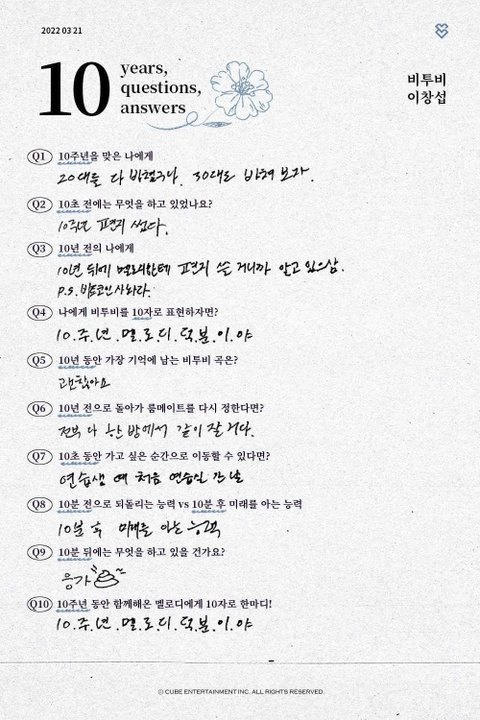 2022 03 21
10 years,
questions,
answers
비투비
이창섭
Q1 10주년을 맞은 나에게
20대를 다 바쳤구나. 30대도 바쳐 보자.
Q2 10초 전에는 무엇을 하고 있었나요?
10주년 편지 썼다.
Q3 10년 전의 나에게
10년 뒤에 멜로디한테 편지 쓸 거니까 알고 있으삼.
P.S. 비트코인 사놔라.
Q4 나에게 비투비를 10자로 표현하자면?
10.주.년.멜.로.디.덕.분.이.야
Q5 10년 동안 가장 기억에 남는 비투비 곡은?
괜찮아요
Q6 10년 전으로 돌아가 룸메이트를 다시 정한다면?
전부 다 한 방에서 같이 잘 거다.
Q7 10초 동안 가고 싶은 순간으로 이동할 수 있다면?
연습생 때 처음 연습실 간 날
Q8 10분 전으로 되돌리는 능력 vs 10분 후 미래를 아는 능력
10분 후 미래를 아는 능력
Q9 10분 뒤에는 무엇을 하고 있을 건가요?
응가
Q10 10주년 동안 함께해온 멜로디에게 10자로 한마디!
10.주.년.멜.로.디.덕.분.이.야
© CUBE ENTERTAINMENT INC. ALL RIGHTS RESERVED.